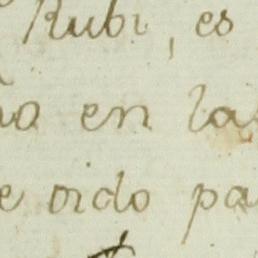 Rubi, es
en la
oido pa